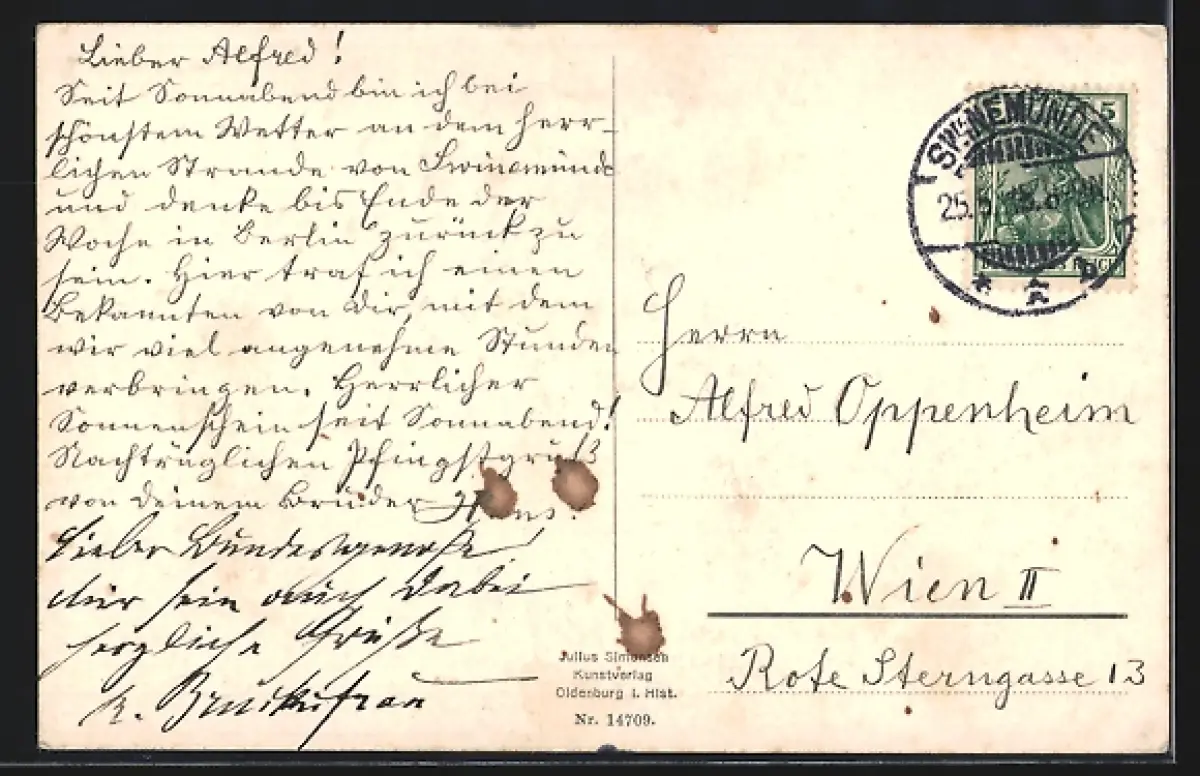 Lieber Alfred!
Seit Sonnabend bin ich bei
schönstem Wetter an dem herr-
lichen Strande von Swinemünde
und denke bis Ende der
Woche in Berlin zurück zu
sein. Hier traf ich einen
Bekannten von Dir, mit dem
wir viel angenehme Stunden
verbringen. Herrlicher
Sonnenschein seit Sonnabend!
Nachträglichen Pfingstgruß
von Deinem Bruder Hans.
Lieber Bundesgenosse!
auch dabei
herzliche Grüße
SWINEMÜNDE
25.5.
* a
5
Herrn
Alfred Oppenheim
Wien II
Rote Sterngasse 13
Julius Simonsen
Kunstverlag
Oldenburg i. Hlst.
Nr. 14709.